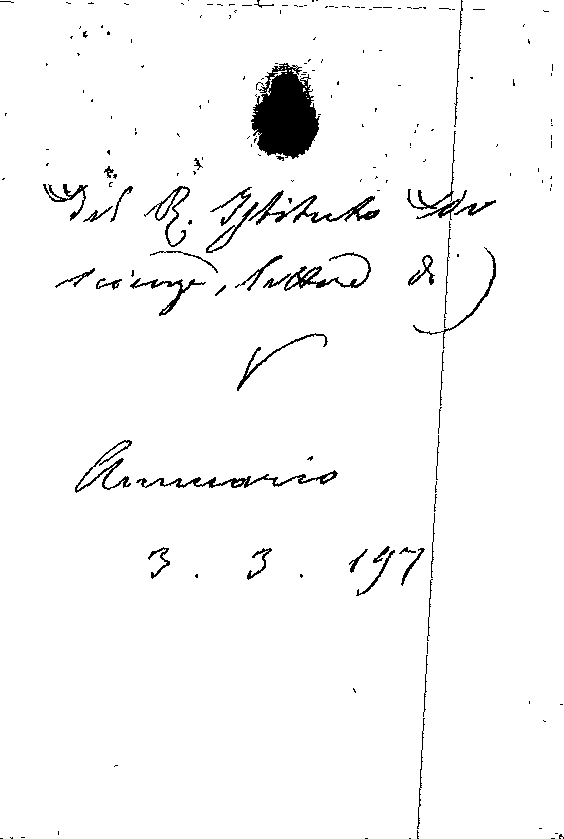 del R. Istituto
scienze, lettere di
V
Annuario
3. 3. 197